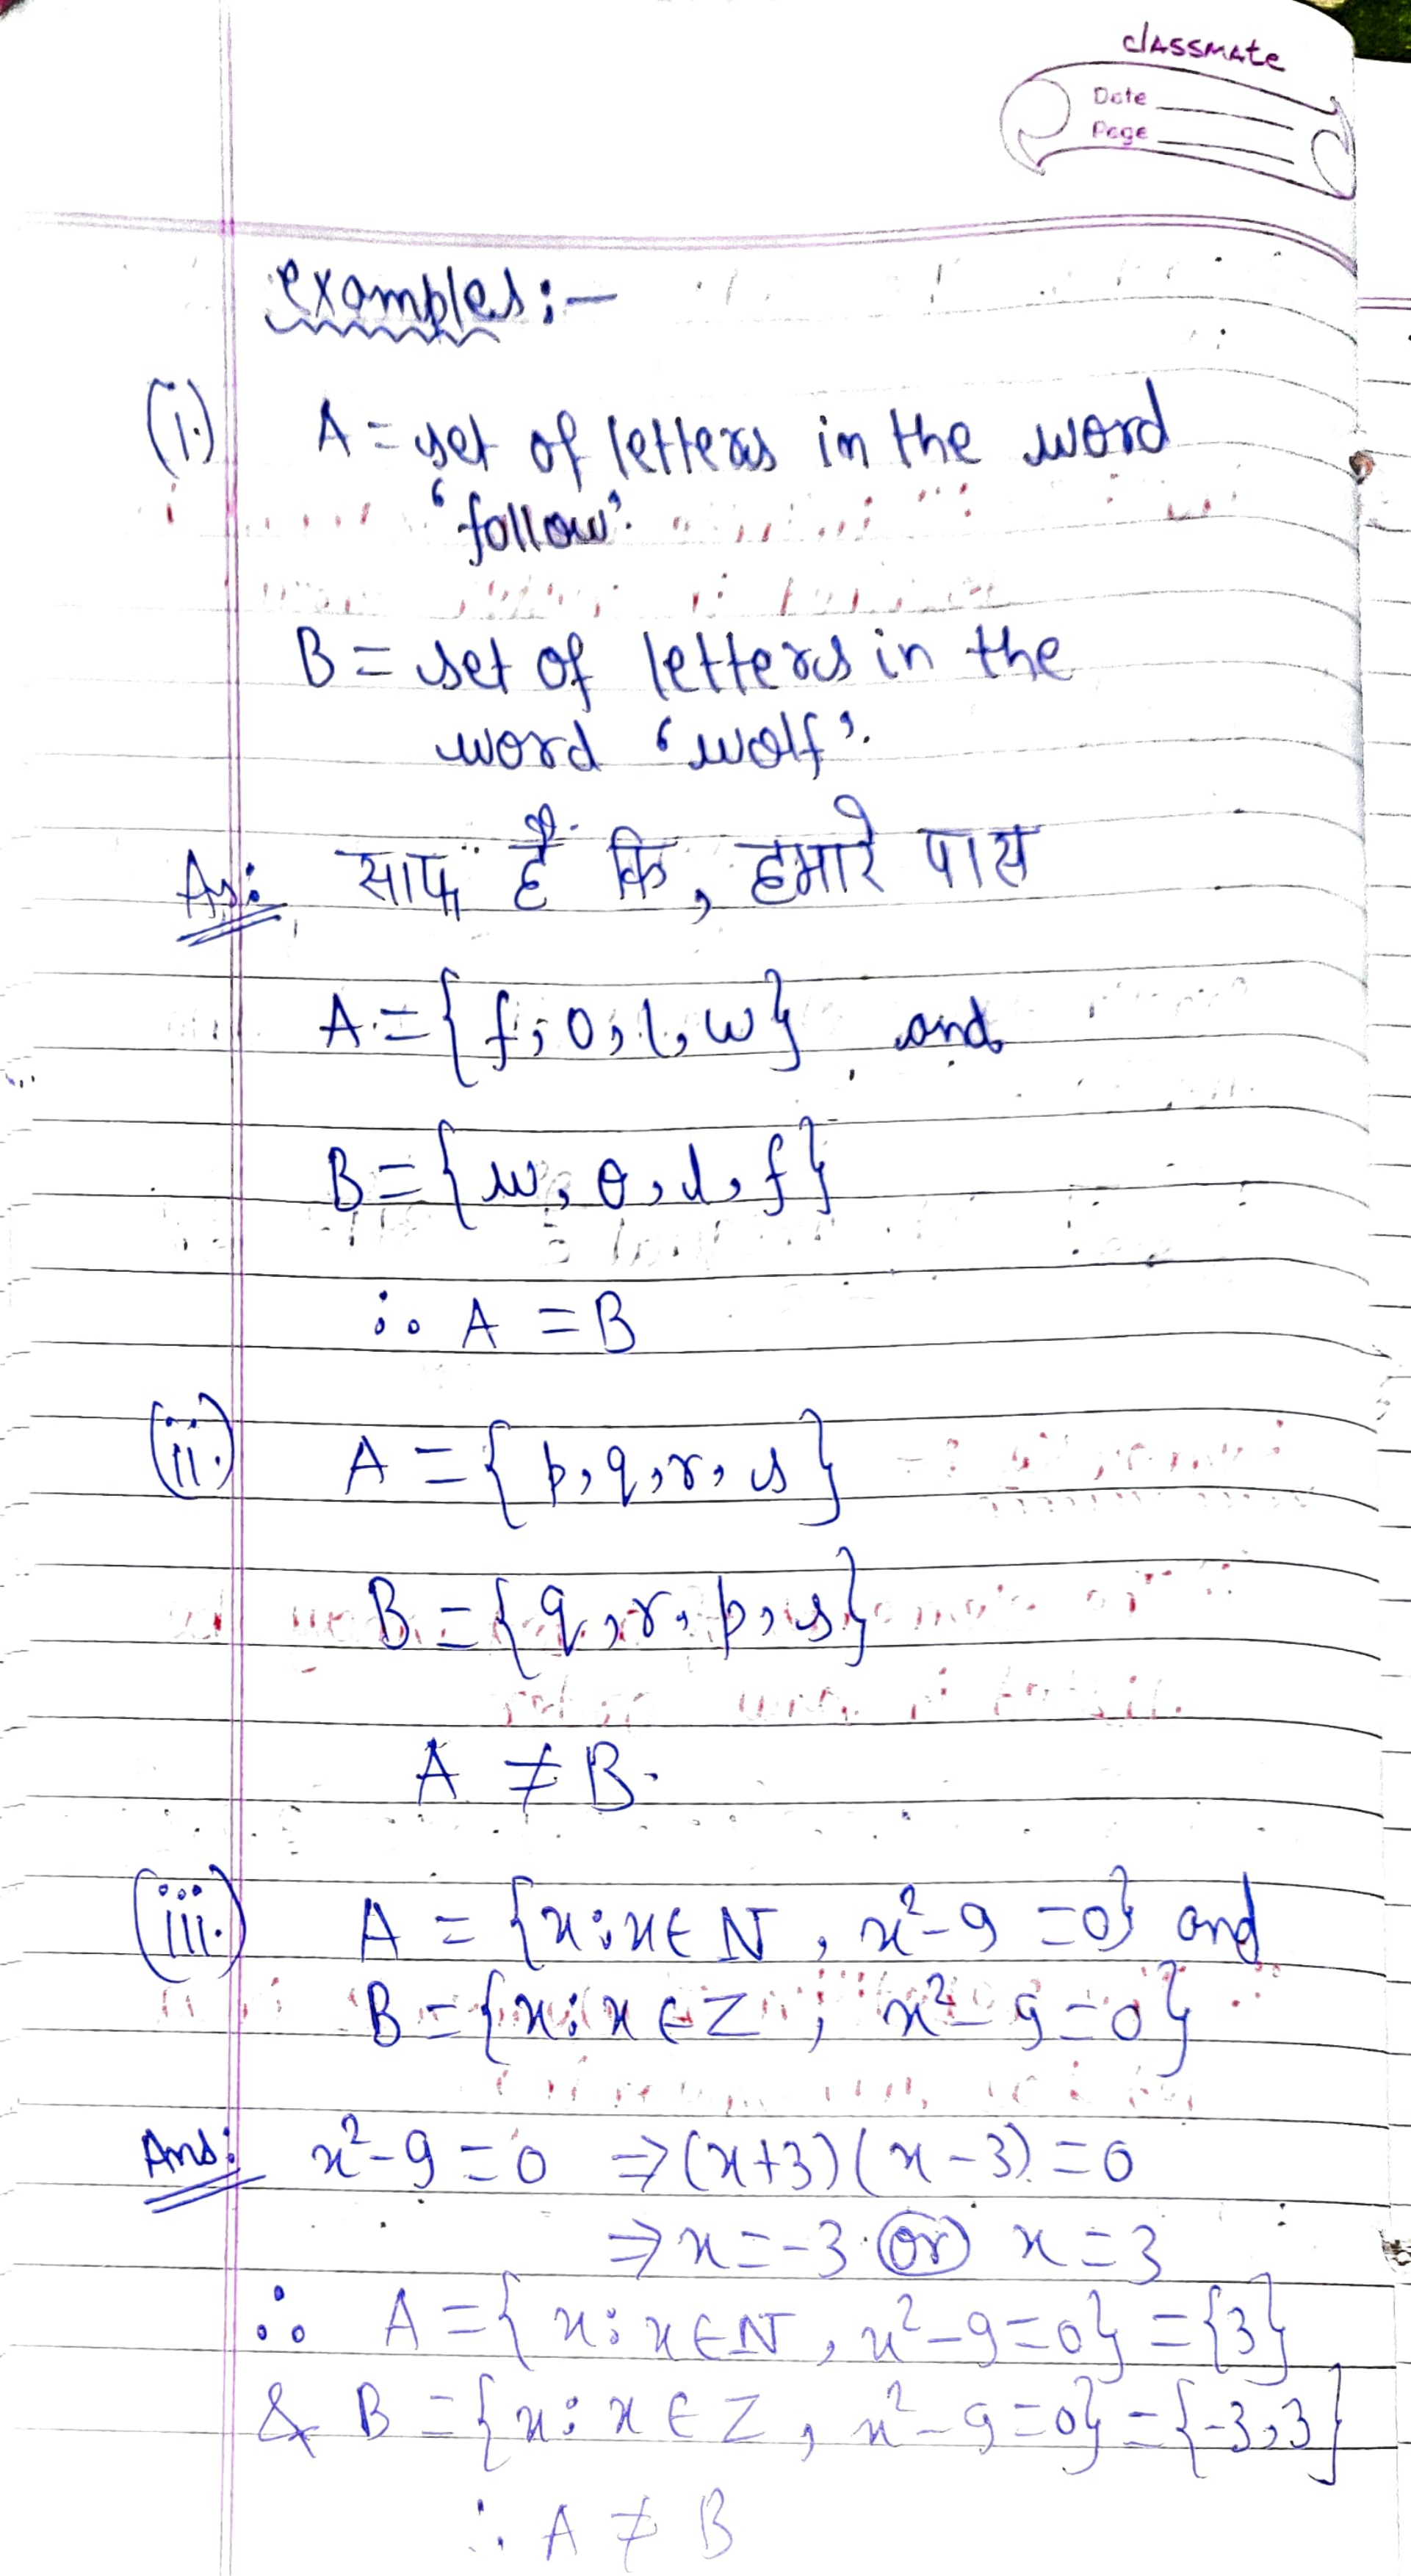 classmate
Date
Page
examples:-
(i.) A = set of letters in the word
'follow'.
B = set of letters in the
word 'wolf'.
साफ है कि, हमारे पास
A = {f, o, l, w} and
B = {w, o, l, f}
∴ A = B
(ii.) A = {p, q, r, s}
B = {q, r, p, s}
A ≠ B.
(iii.) A = {x : x ∈ N, x² - 9 = 0} and
B = {x : x ∈ Z, x² - 9 = 0}
Ans: x² - 9 = 0 ⇒ (x+3)(x-3) = 0
⇒ x = -3 or x = 3
∴ A = {x : x ∈ N, x² - 9 = 0} = {3}
& B = {x : x ∈ Z, x² - 9 = 0} = {-3, 3}
∴ A ≠ B